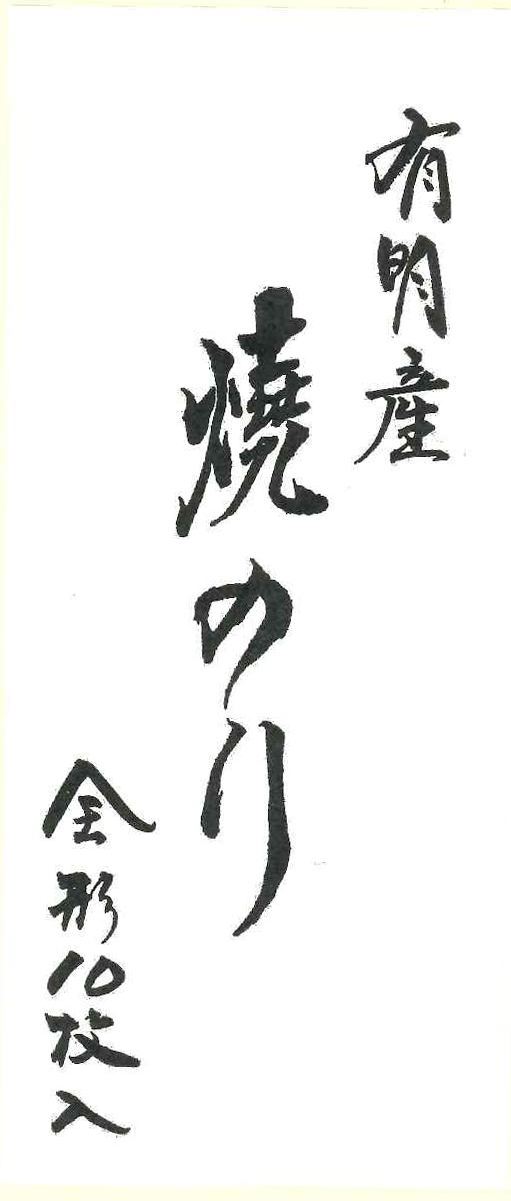 有明産
焼のり
全形10枚入